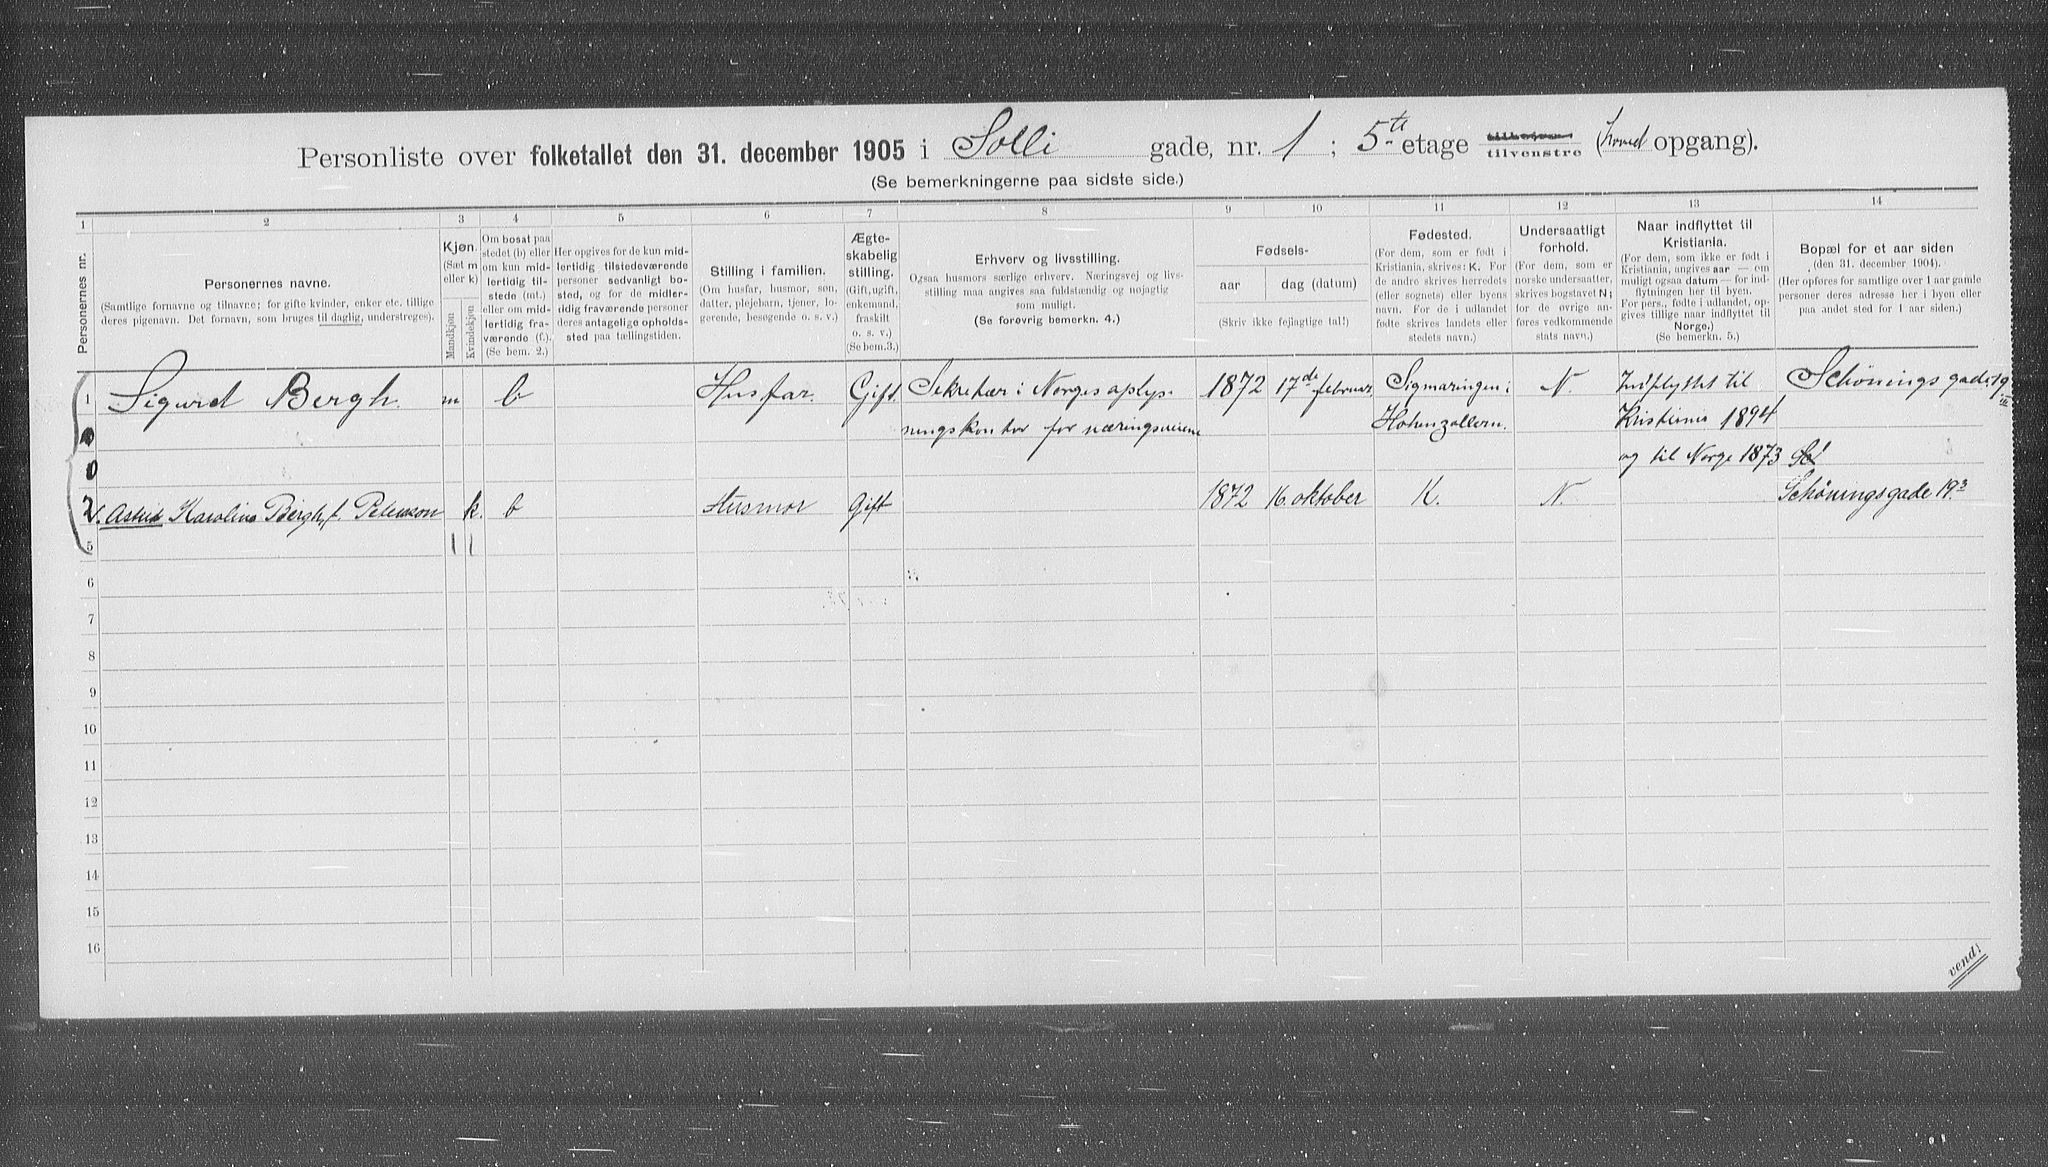 Personliste over folketallet den 31. december 1905 i Solli gade, nr. 1 ; 5te etage tilhøjre tilvenstre (hoved opgang).
(Se bemerkningerne paa sidste side.)
1 2 3 4 5 6 7 8 9 10 11 12 13 14
Personernes nr.
Personernes navne.
(Samtlige fornavne og tilnavne; for gifte kvinder, enker etc. tillige
deres pigenavn. Det fornavn, som bruges til daglig, understreges).
Kjøn.
(Sæt m
eller k)
Mandkjøn
Kvindekjøn
Om bosat paa
stedet (b) eller
om kun mid-
lertidig til-
stede (mt.)
eller om mid-
lertidig fra-
værende (f.).
(Se bem. 2.)
Her opgives for de kun mid-
lertidig tilstedeværende
personer sedvanligt bo-
sted, og for de midler-
tidig fraværende personer
deres antagelige opholds-
sted paa tællingstiden.
Stilling i familien.
(Om husfar, husmor, søn,
datter, plejebarn, tjener, lo-
gerende, besøgende o. s. v.)
Ægte-
skabelig
stilling.
(Gift, ugift,
enkemand,
fraskilt
o. s. v.)
(Se bem. 3.)
Erhverv og livsstilling.
Ogsaa husmors særlige erhverv. Næringsvej og livs-
stilling maa angives saa fuldstændig og nøjagtig
som muligt.
(Se forøvrig bemerkn. 4.)
Fødsels-
aar dag (datum)
(Skriv ikke fejlagtige tal!)
Fødested.
(For dem, som er født i
Kristiania, skrives: K. For
de andre skrives herredets
(eller sognets) eller byens
navn. For de i udlandet
fødte skrives landets eller
stedets navn.)
Undersaatligt
forhold.
(For dem, som er
norske undersaatter,
skrives bogstavet N;
for de øvrige an-
føres vedkommende
stats navn.)
Naar indflyttet til
Kristiania.
(For dem, som ikke er født i
Kristiania, angives aar — om
muligt ogsaa datum — for ind-
flytningen her til byen.
For pers., fødte i udlandet, op-
gives tillige naar indflyttet til
Norge.)
(Se bemerkn. 5.)
Bopæl for et aar siden
(den 31. december 1904).
(Her opføres for samtlige over 1 aar gamle
personer deres adresse her i byen eller
paa andet sted for 1 aar siden.)
1 Sigurd Bergh. m b Husfar. Gift. Sekretær i Norges oplys- 1872 17de februar. Sigmaringen i N. Indflyttet til Schönings gade 19 III
ningskontor for næringsveiene Hohenzollern. Kristiania 1894
og til Norge 1873 Sc
2 Astrid Karolina Bergh, f. Petersson k. b Husmor Gift 1872 16. oktober K. N. Schöningsgade 19.3
5 1 1
6
7
8
9
10
11
12
13
14
15
16
vend!